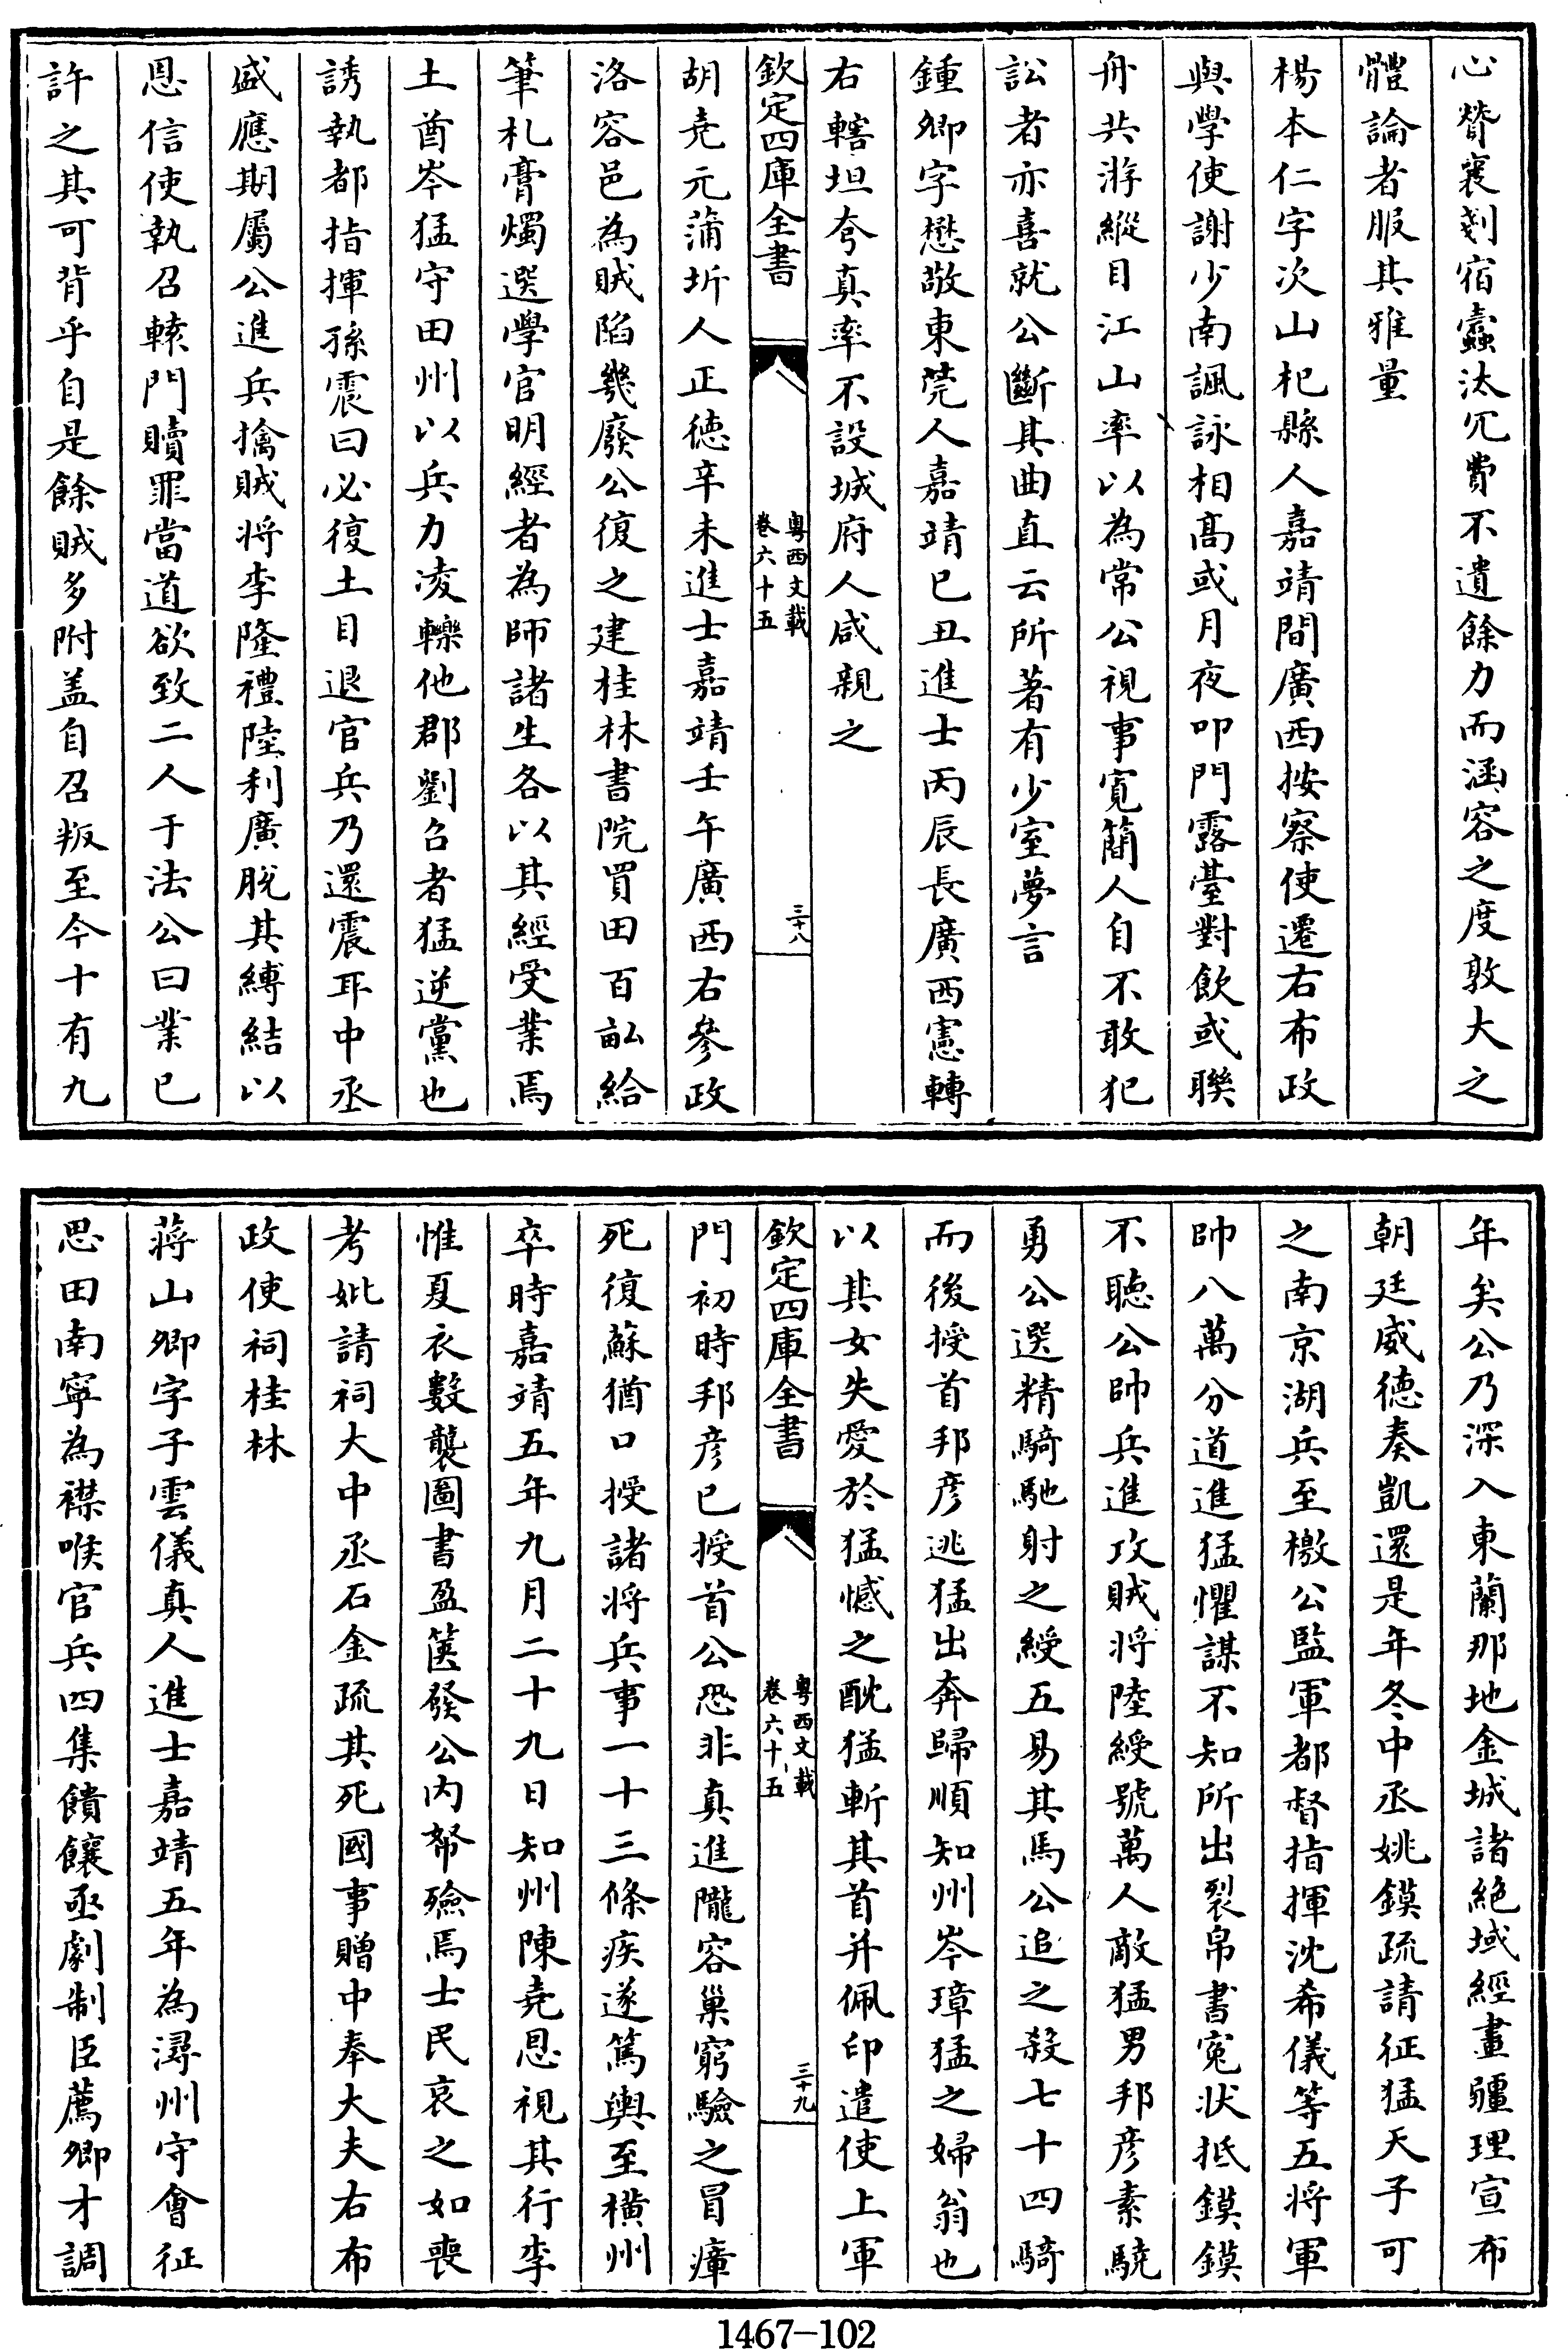 心贊襄剗宿蠹汰冗費不遺餘力而涵容之度敦大之
體論者服其雅量
楊本仁字次山杞縣人嘉靖間廣西按察使遷右布政
與學使謝少南諷詠相髙或月夜叩門露臺對飲或聨
舟共游縱目江山率以為常公視事寛簡人自不敢犯
訟者亦喜就公斷其曲直云所著有少室夢言
鍾卿字懋敬東莞人嘉靖己丑進士丙辰長廣西憲轉
右轄坦夸真率不設城府人咸親之
欽定四庫全書
粤西文載
卷六十五
三十八
胡堯元蒲圻人正徳辛未進士嘉靖壬午廣西右參政
洛容邑為賊陷幾廢公復之建桂林書院買田百畆給
筆札膏燭選學官明經者為師諸生各以其經受業焉
土酋岑猛守田州以兵力凌轢他郡劉召者猛逆黨也
誘執都指揮孫震曰必復土目退官兵乃還震耳中丞
盛應期屬公進兵擒賊将李隆禮陸利廣脱其縛結以
恩信使執召轅門贖罪當道欲致二人于法公曰業已
許之其可背乎自是餘賊多附盖自召叛至今十有九
年矣公乃深入東蘭那地金城諸絶域經畫疆理宣布
朝廷威徳奏凱還是年冬中丞姚鏌疏請征猛天子可
之南京湖兵至檄公監軍都督指揮沈希儀等五将軍
帥八萬分道進猛懼謀不知所出裂帛書寃状抵鏌鏌
不聽公帥兵進攻賊将陸綬號萬人敵猛男邦彦素驍
勇公選精騎馳射之綬五易其馬公追之殺七十四騎
而後授首邦彦逃猛出奔歸順知州岑璋猛之婦翁也
以其女失愛於猛憾之酖猛斬其首并佩印遣使上軍
欽定四庫全書
粤西文載
卷六十五
三十九
門初時邦彦已授首公恐非真進隴容巢窮驗之冒瘴
死復蘇猶口授諸将兵事一十三條疾遂篤輿至横州
卒時嘉靖五年九月二十九日知州陳堯恩視其行李
惟夏衣數襲圖書盈篋發公内帑殮焉士民哀之如喪
考妣請祠大中丞石金疏其死國事贈中奉大夫右布
政使祠桂林
蔣山卿字子雲儀真人進士嘉靖五年為潯州守會征
思田南寧為襟喉官兵四集饋饟亟劇制臣薦卿才調
1467-102